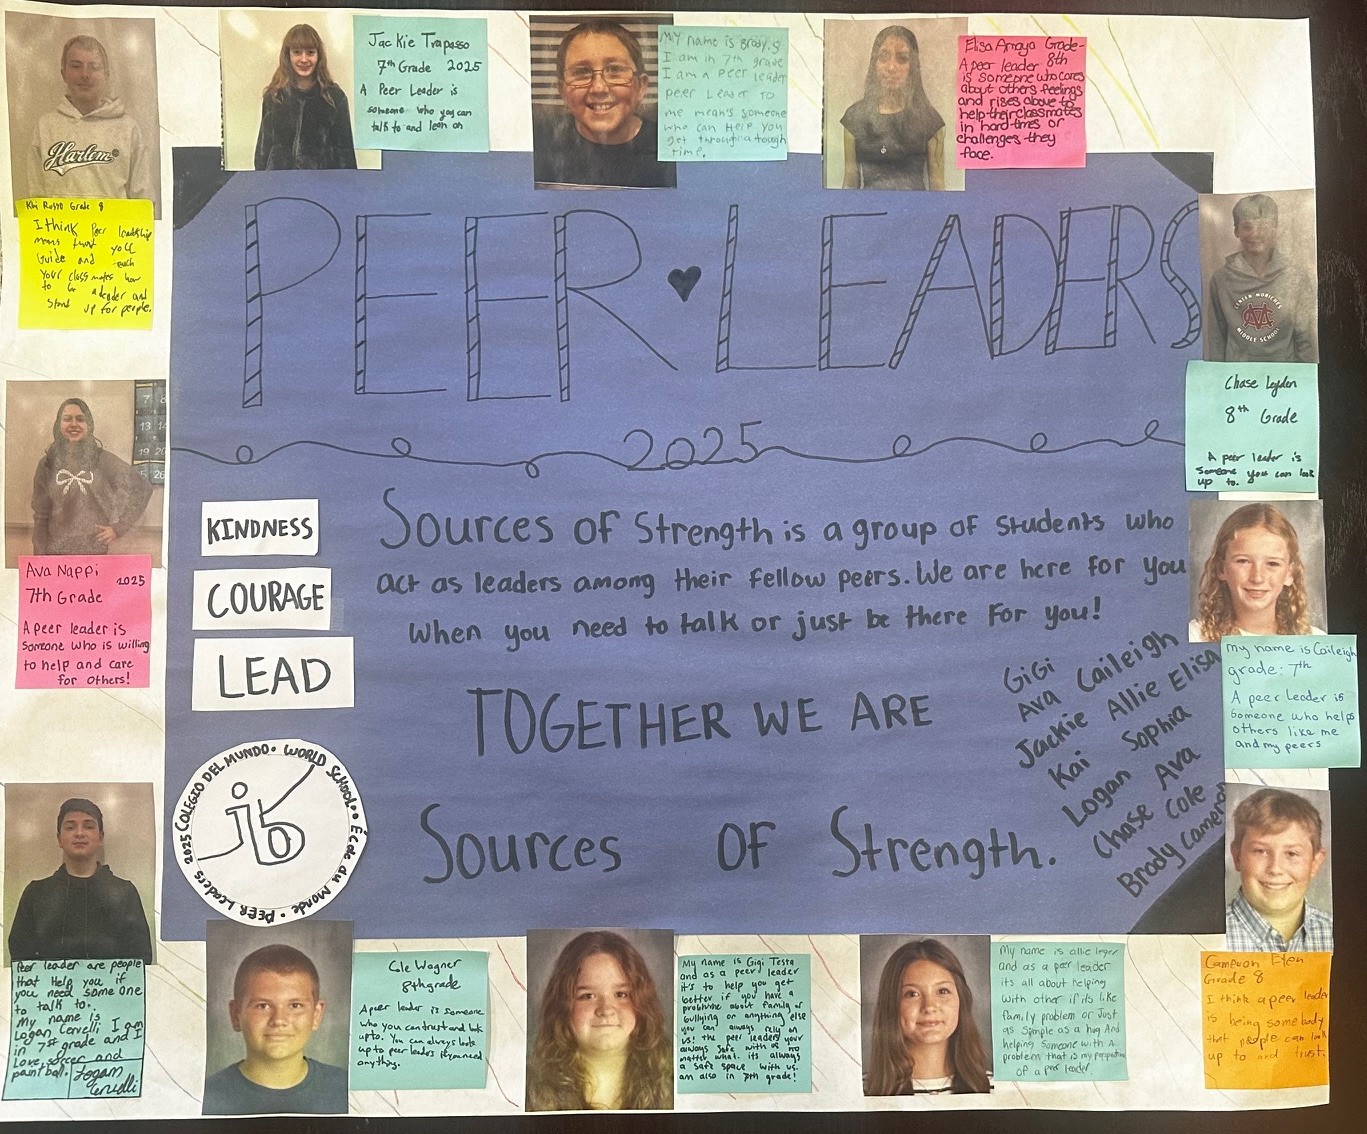 Harlem
Kai Russo Grade 8
I think Peer leadership
means that you
Guide and teach
your classmates how
to be a leader and
stand up for people.
Jackie Trapasso
7th Grade 2025
A Peer Leader is
someone who you can
talk to and lean on
My name is Brody.S
I am in 7th grade
I am a peer leader
peer Leader to
me means someone
who can Help you
get through a tough
time.
Elisa Arroyo Grade-
A peer leader 8th
is someone who cares
about others feelings
and rises above to
help their classmates
in hard times or
challenges they
face.
PEER LEADERS
2025
CENTER MORICHES
MIDDLE SCHOOL
Chase Leyden
8th Grade
A peer leader is
someone you can look
up to.
Ava Nappi 2025
7th Grade
A peer leader is
someone who is willing
to help and care
for others!
KINDNESS
COURAGE
LEAD
Sources of Strength is a group of students who
act as leaders among their fellow peers. We are here for you
when you need to talk or just be there for you!
TOGETHER WE ARE
Sources OF Strength.
GiGi
Ava Caileigh
Jackie Allie Elisa
Kai Sophia
Logan Ava
Chase Cole
Brody Cameron
my name is Caileigh
grade: 7th
A peer leader is
someone who helps
others like me
and my peers
2025 COLEGIO DEL MUNDO • WORLD SCHOOL • École du Monde • PEER Leaders
ib
Peer leader are people
that help you if
you need some one
to talk to.
My name is
Logan Cervelli I am
in 7st grade and I
Love, soccer and
paintball. Logan
Cervelli
Cole Wagner
8th grade
A peer leader is someone
who you can trust and look
up to. You can always look
up to peer leaders if you need
anything.
My name is Gigi Testa
and as a peer leader
it's to help you get
better if you have a
problime about family or
bullying or anything else
you can always rely on
us! the peer leaders your
always safe with us no
matter what. its always
a safe space with us.
am also in 7th grade!
My name is allie leger
and as a peer leader
its all about helping
with other if its like
family problem or Just
as simple as a hug And
helping Someone with A
problem that is my perspective
of a peer leader.
Cameron
Grade 8
I think a peer leader
is being somebody
that people can look
up to and trust.